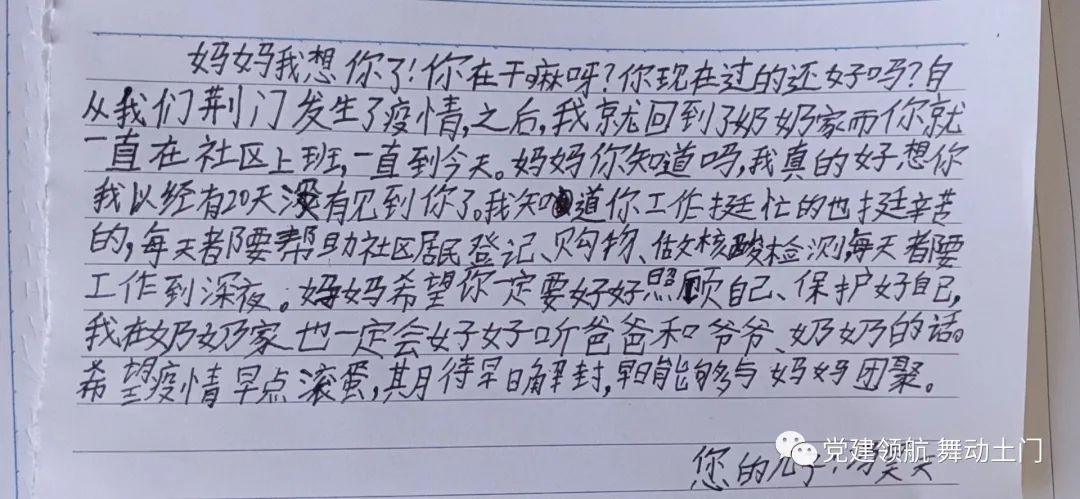 妈妈我想你了!你在干嘛呀?你现在过的还好吗?自
从我们荆门发生了疫情,之后,我就回到了奶奶家而你就
一直在社区上班,一直到今天。妈妈你知道吗,我真的好想你
我以经有20天没有见到你了。我知道你工作挺忙的也挺辛苦
的,每天都要帮助社区居民登记、购物、做核酸检测,每天都要
工作到深夜。妈妈希望你一定要好好照顾自己、保护好自己,
我在奶奶家也一定会好好听爸爸和爷爷、奶奶的话。
希望疫情早点滚蛋,期待早日解封,早日能够与妈妈团聚。
您的儿子:
党建领航 舞动土门